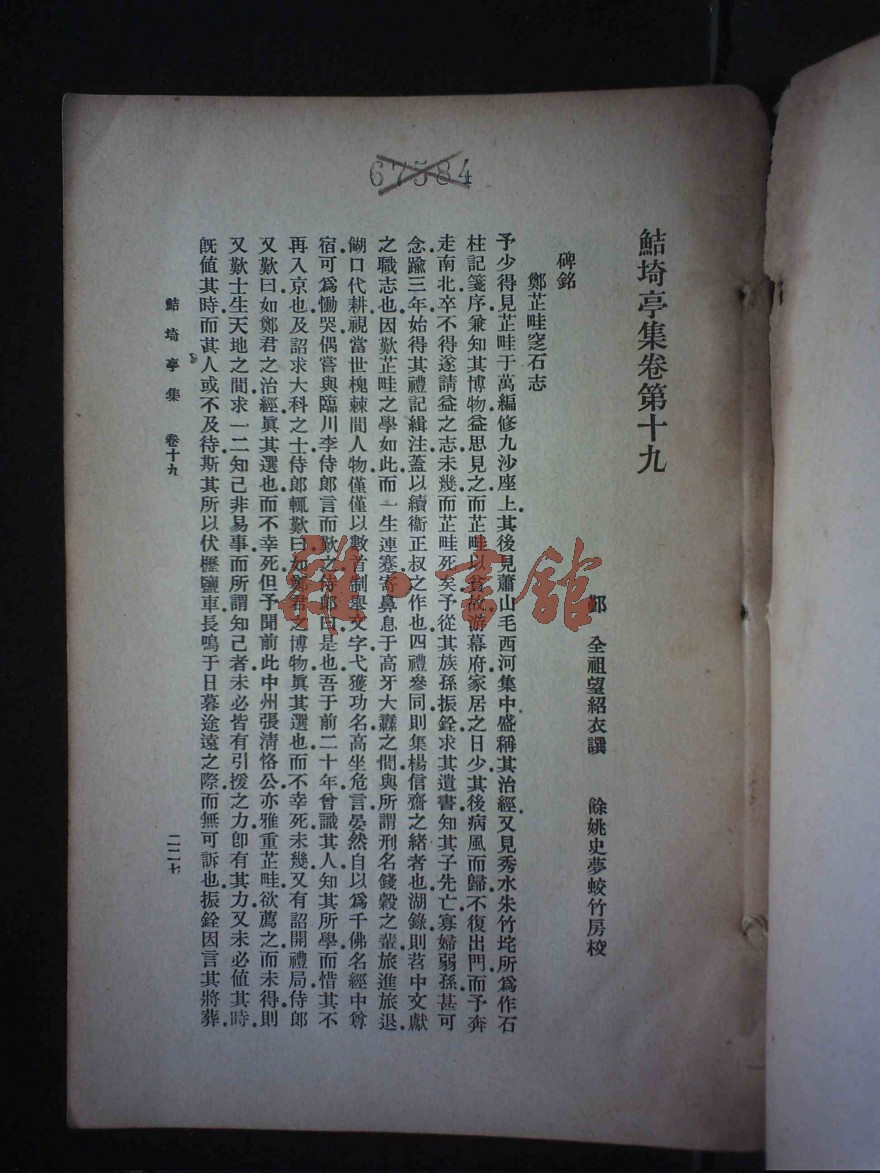 67584
鮚埼亭集卷第十九
鄞 全祖望紹衣譔 餘姚史夢蛟竹房校
碑銘
鄭芷畦窆石志
予少得見芷畦于萬編修九沙座上其後見蕭山毛西河集中盛稱其治經又見秀水朱竹垞所爲作石
柱記箋序兼知其博物益思見之而芷畦以貧故游幕府家居之日少其後病風而歸不復出門而予奔
走南北卒不得遂請益之志未幾而芷畦死矣予從其族孫振銓求其遺書知其子先亡寡婦弱孫甚可
念踰三年始得其禮記緝注蓋以續衞正叔之作也四禮參同則集楊信齋之緒者也湖錄則苕中文獻
之職志也因歎芷畦之學如此而一生連蹇寄鼻息于高牙大纛之間與所謂刑名錢穀之輩旅進旅退
餬口代耕視當世槐棘間人物僅僅以數首制舉文字弋獲功名高坐危言晏然自以爲千佛名經中尊
宿可爲慟哭偶嘗與臨川李侍郎言而歎之侍郎曰是也吾于前二十年曾識其人知其所學而惜其不
再入京也及詔求大科之士侍郎輒歎曰如鄭君之博物眞其選也而不幸死未幾又有詔開禮局侍郎
又歎曰如鄭君之治經眞其選也而不幸死但予聞前此中州張淸恪公亦雅重芷畦欲薦之而未得則
又歎士生天地之間求一二知己非易事而所謂知己者未必皆有引援之力卽有其力又未必値其時
旣値其時而其人或不及待斯其所以伏櫪鹽車長鳴于日暮途遠之際而無可訴也振銓因言其將葬
鮚埼亭集 卷十九
二二七
雜·书館